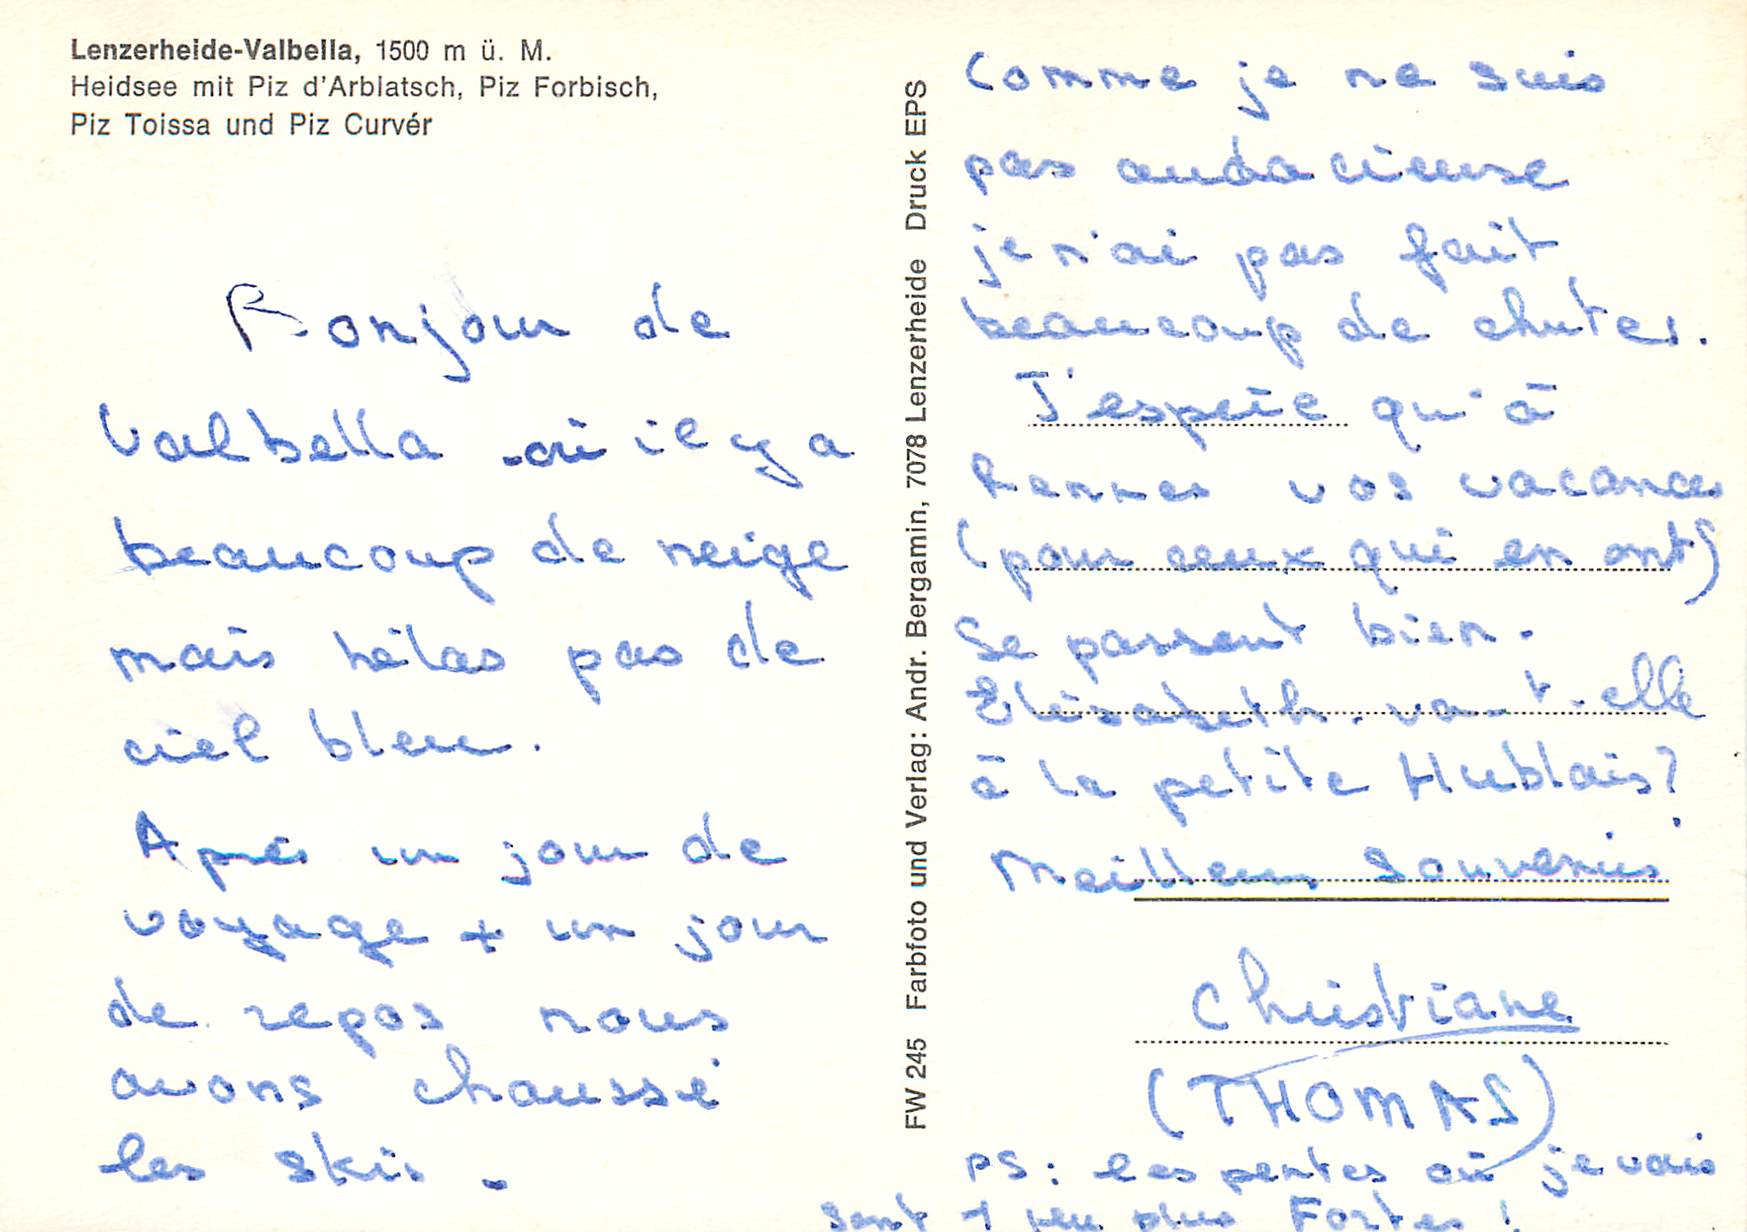 Lenzerheide-Valbella, 1500 m ü. M.
Heidsee mit Piz d'Arblatsch, Piz Forbisch,
Piz Toissa und Piz Curvér
Bonjour de
Valbella où il y a
beaucoup de neige
mais hélas pas de
ciel bleu.
Après un jour de
voyage + un jour
de repos nous
avons chaussé
les skis.
FW 245 Farbfoto und Verlag: Andr. Bergamin, 7078 Lenzerheide Druck EPS
Comme je ne suis
pas audacieuse
je n'ai pas fait
beaucoup de chutes.
J'espère qu'à
Rennes vos vacances
(pour ceux qui en ont)
se passent bien.
Elisabeth va-t-elle
à la petite Hublais?
Meilleurs souvenirs
Christiane
(THOMAS)
PS: les pentes où je vais
sont 1 peu plus Fortes!